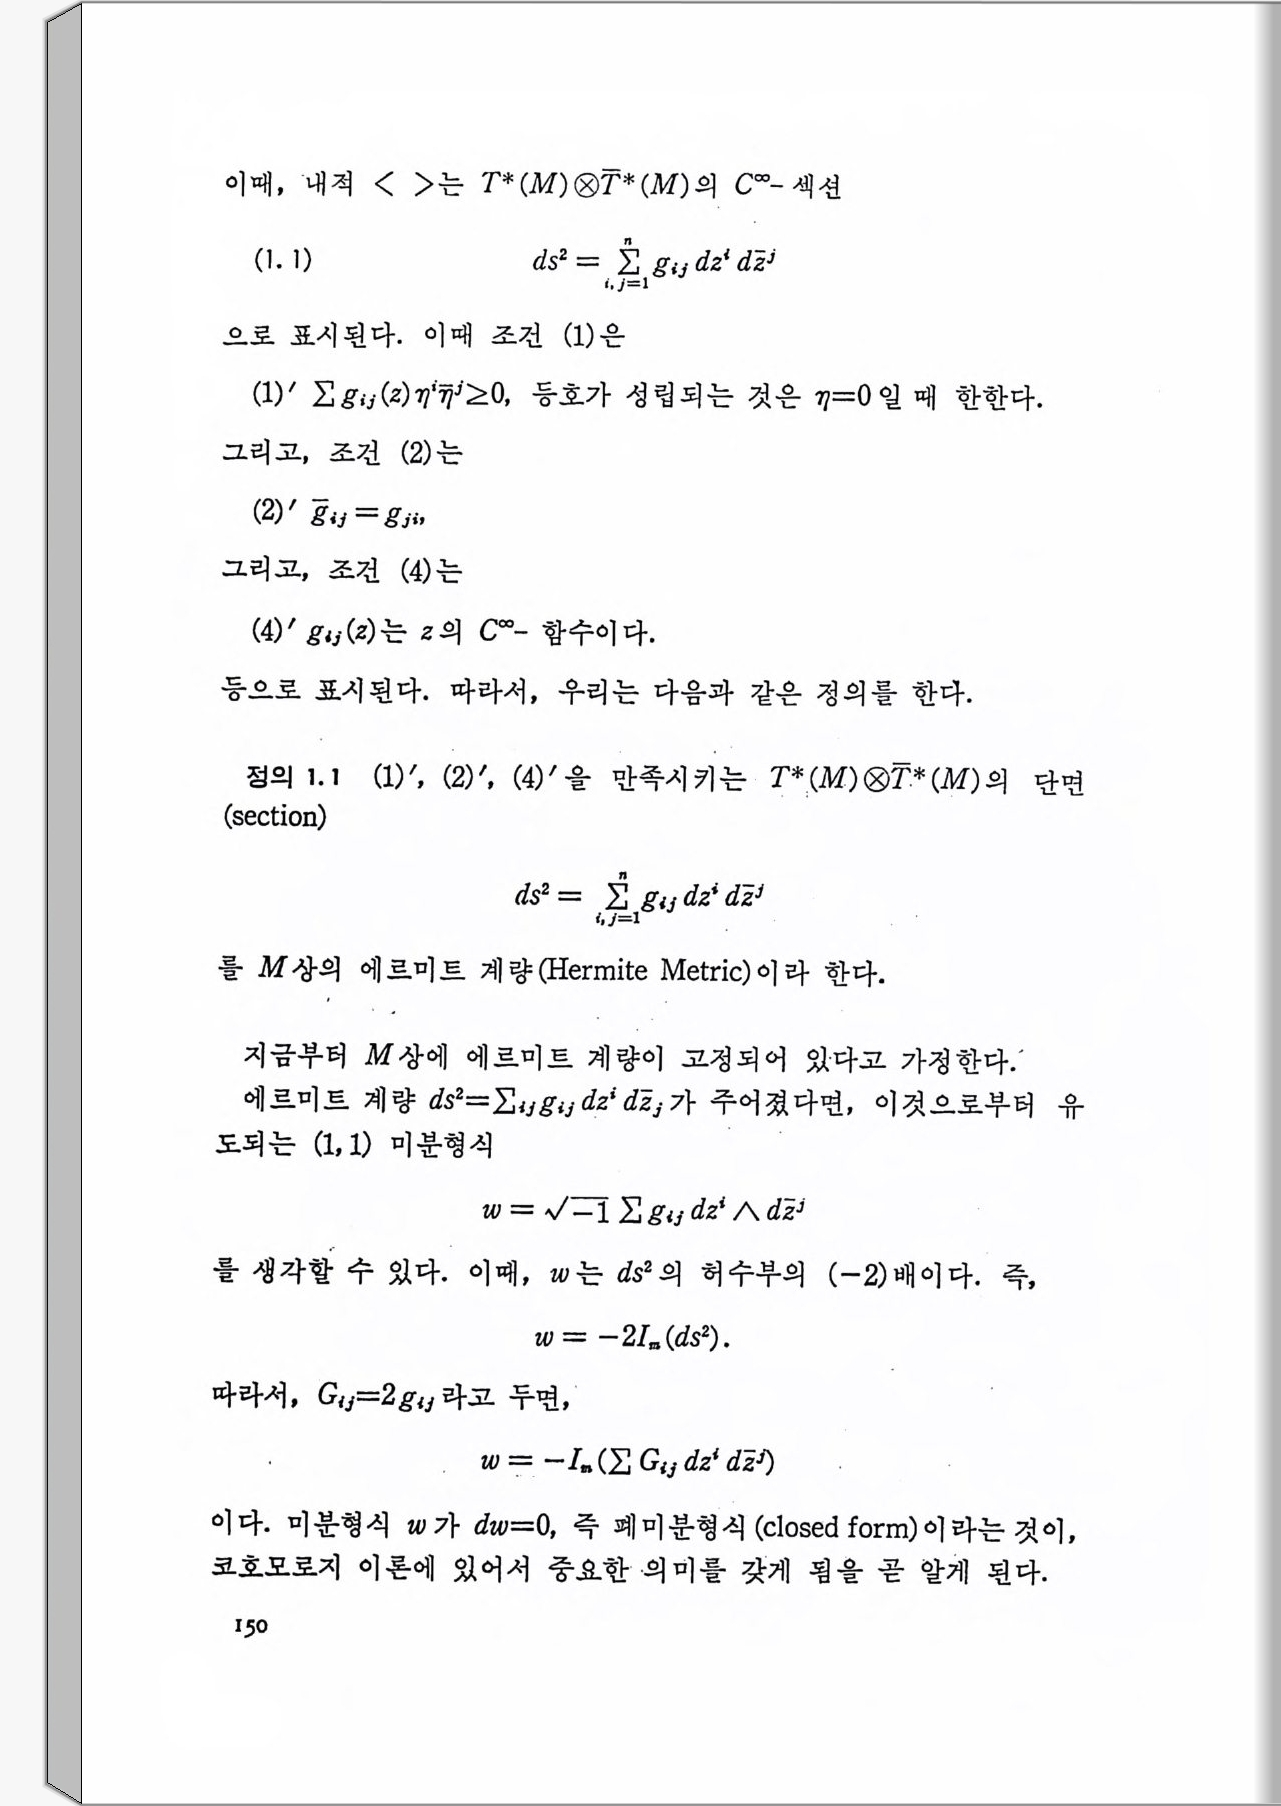 이때, 내적 < >는 T*(M)⊗T̅*(M)의 C^∞- 섹션
(1. 1) ds² = Σ_{i,j=1}^{n} g_{ij} dz^i dz̄^j
으로 표시된다. 이때 조건 (1)은
(1)′ Σ g_{ij}(z)η^i η̄^j≥0, 등호가 성립되는 것은 η=0일 때 한한다.
그리고, 조건 (2)는
(2)′ ḡ_{ij} = g_{ji},
그리고, 조건 (4)는
(4)′ g_{ij}(z)는 z의 C^∞- 함수이다.
등으로 표시된다. 따라서, 우리는 다음과 같은 정의를 한다.
정의 1.1 (1)′, (2)′, (4)′을 만족시키는 T*(M)⊗T̅*(M)의 단면
(section)
ds² = Σ_{i,j=1}^{n} g_{ij} dz^i dz̄^j
를 M상의 에르미트 계량(Hermite Metric)이라 한다.
지금부터 M상에 에르미트 계량이 고정되어 있다고 가정한다.
에르미트 계량 ds²=Σ_{ij} g_{ij} dz^i dz̄_j가 주어졌다면, 이것으로부터 유
도되는 (1, 1) 미분형식
w = √−1 Σ g_{ij} dz^i ∧ dz̄^j
를 생각할 수 있다. 이때, w는 ds²의 허수부의 (−2)배이다. 즉,
w = −2I_m(ds²).
따라서, G_{ij}=2g_{ij}라고 두면,
w = −I_m(Σ G_{ij} dz^i dz̄^j)
이다. 미분형식 w가 dw=0, 즉 폐미분형식(closed form)이라는 것이,
코호모로지 이론에 있어서 중요한 의미를 갖게 됨을 곧 알게 된다.
150